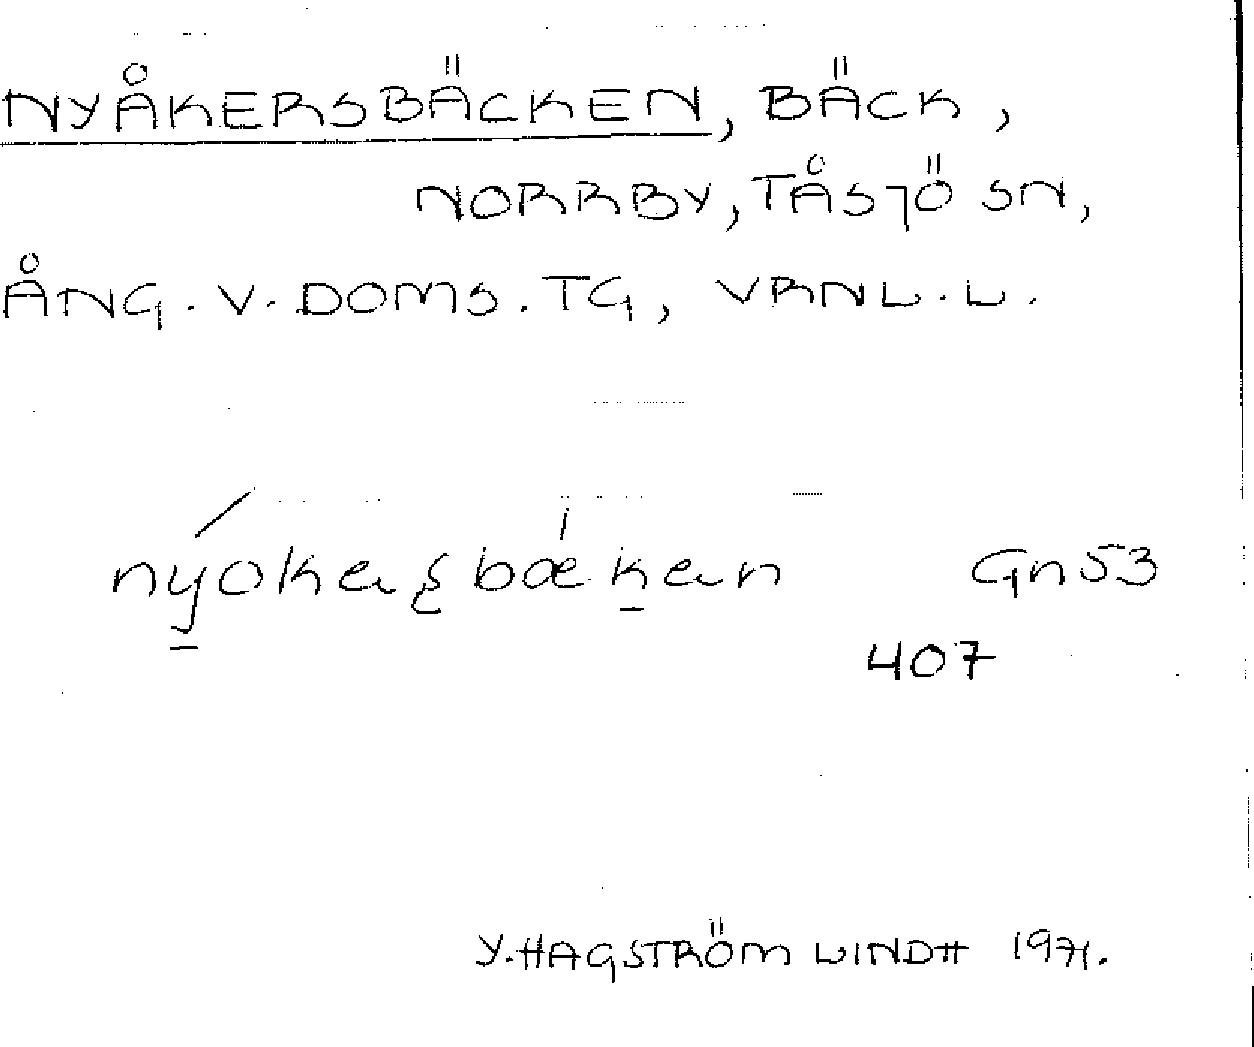 NYÅKERSBÄCKEN, BÄCK,
NORRBY, TÅSJÖ SN,
ÅNG. V. DOMS. TG, VRNL. L.
Gn53
407
Y. HAGSTRÖM LINDH 1971.